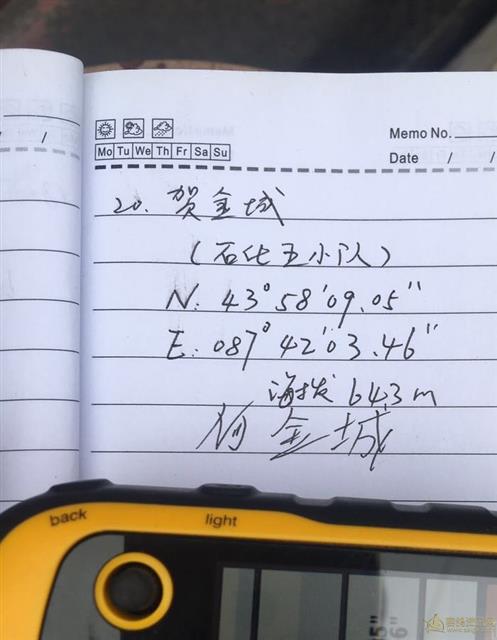 Memo No.
Mo Tu We Th Fr Sa Su
Date / /
/ /
20. 贺金城
(石化五小队)
N: 43°58′09.05″
E: 087°42′03.46″
海拔 643 m
何金城
back
light
5"
6"